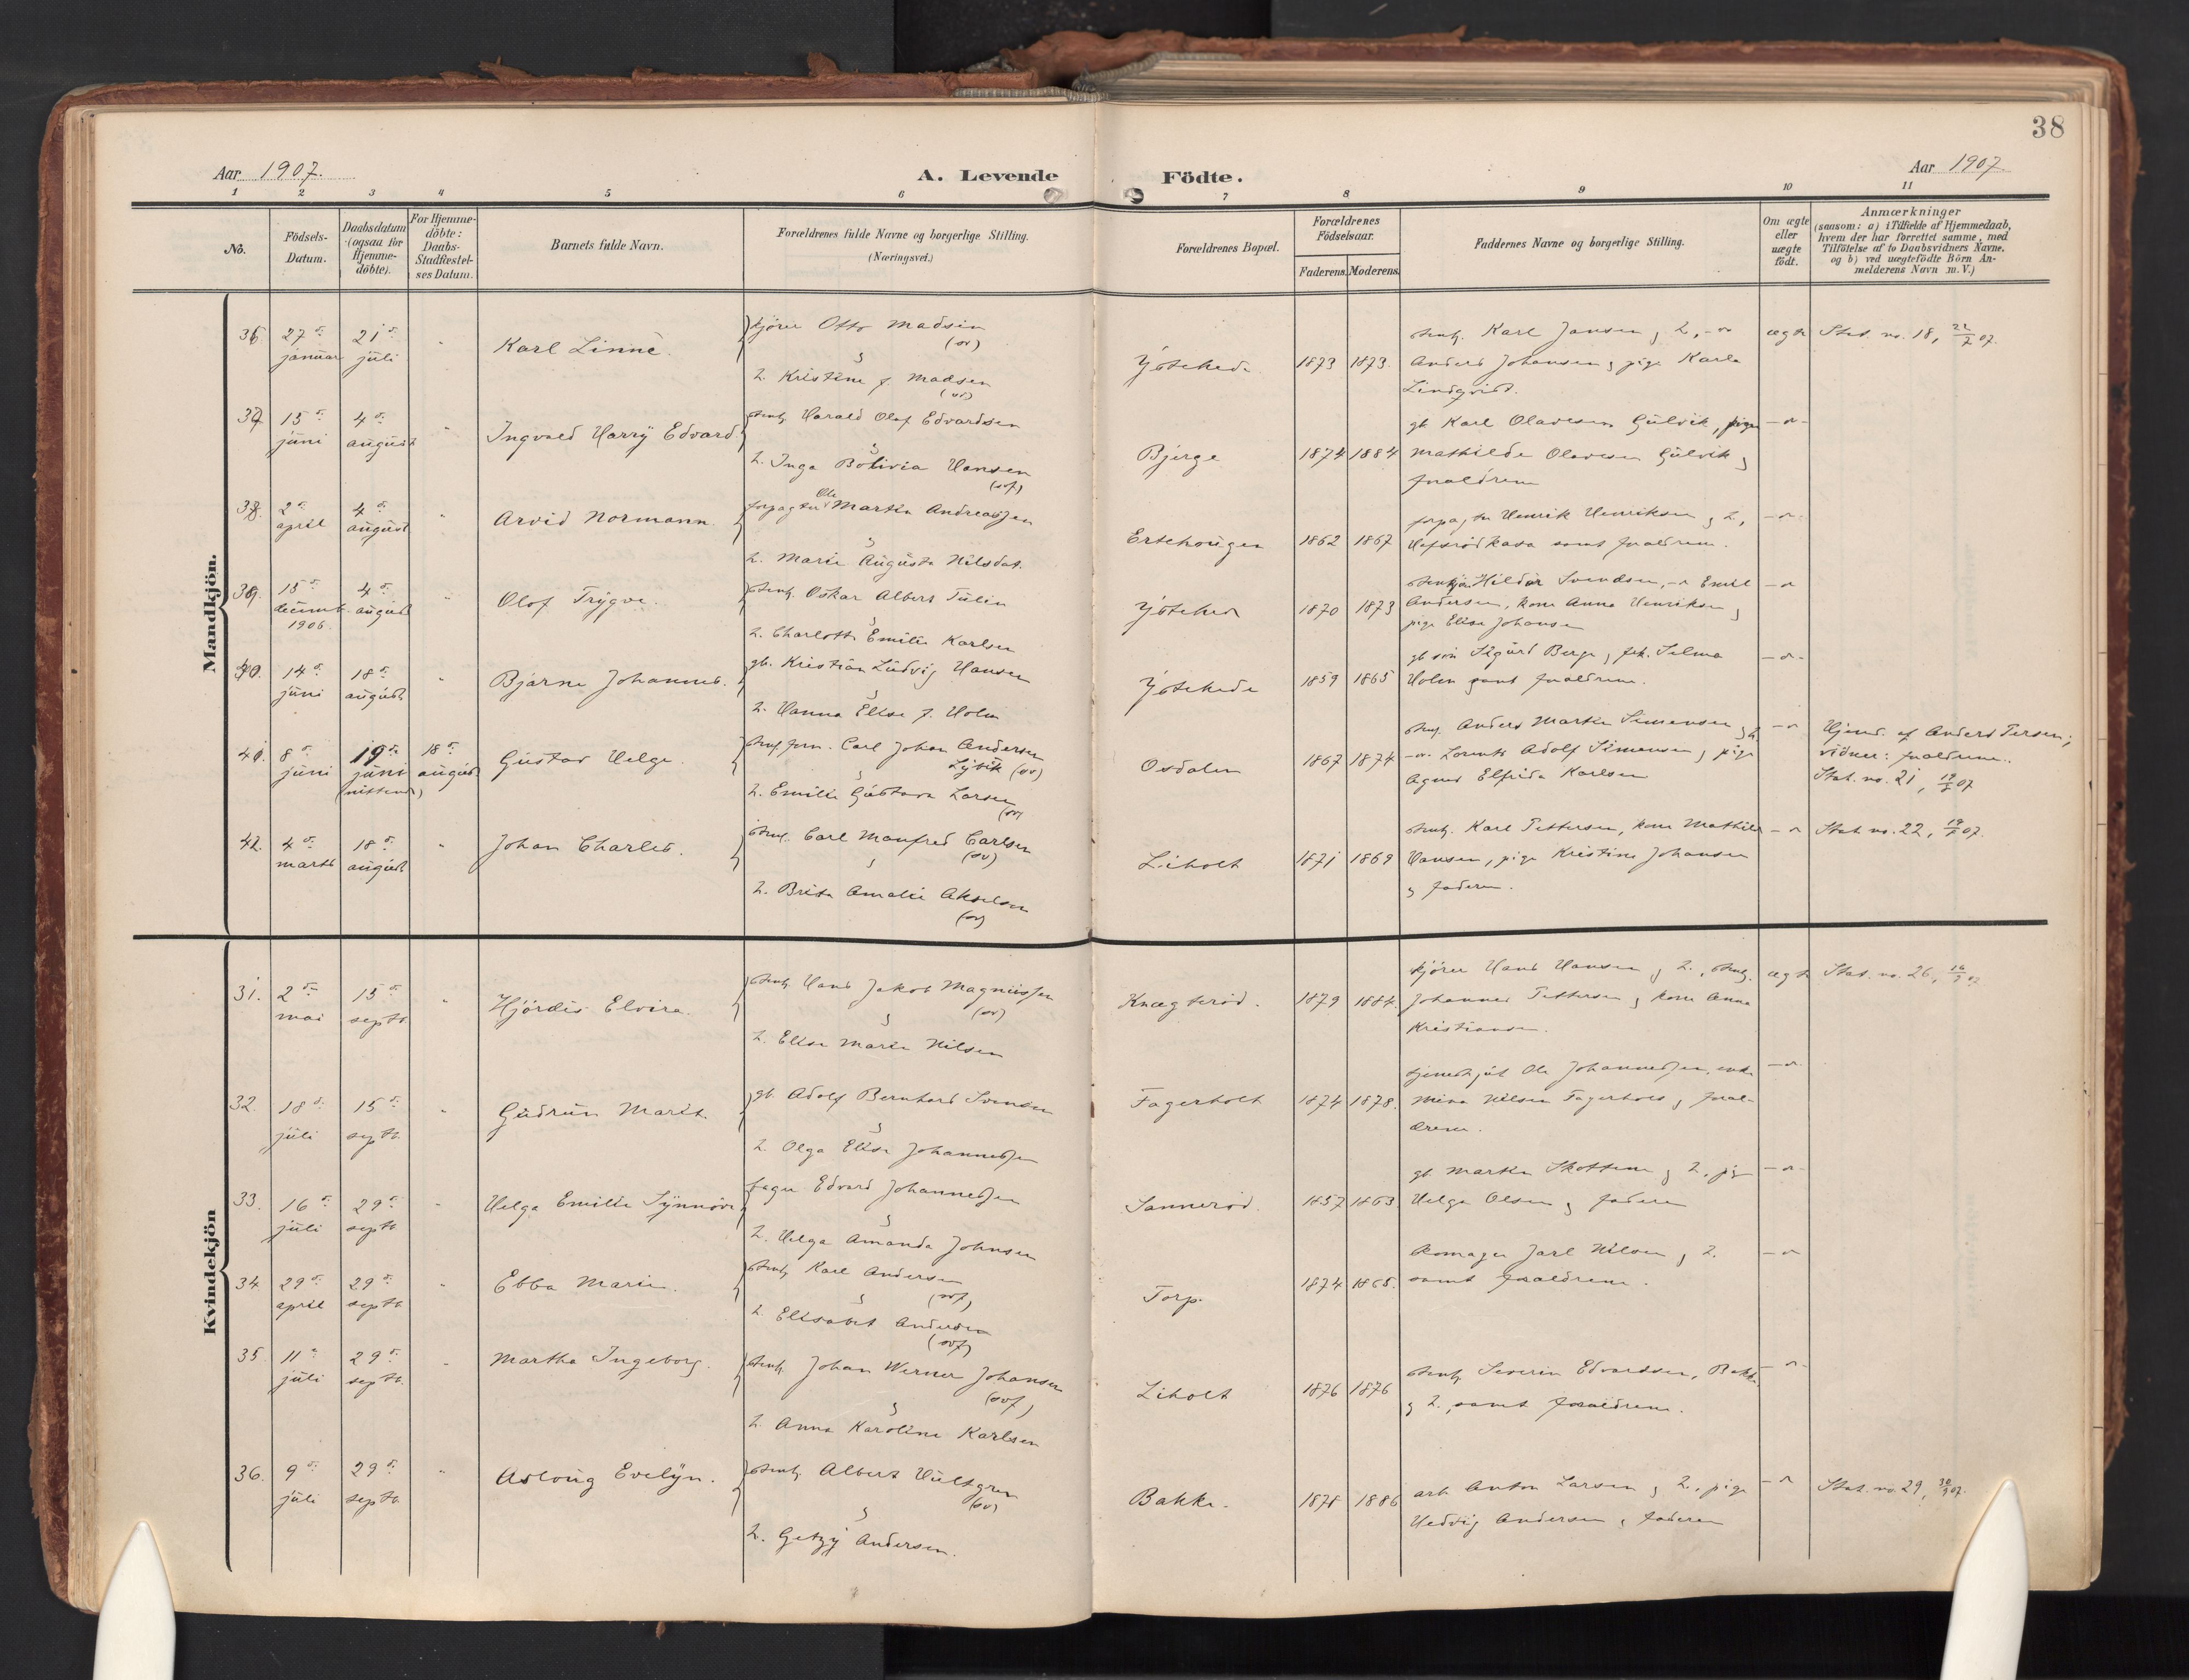 38
Aar 1907.
A. Levende
Födte.
Aar 1907.
1 2 3 4 5 6 7 8 9 10 11
No.
Födsels-
Datum.
Daabsdatum
(ogsaa for
Hjemme-
döbte).
For Hjemme-
döbte:
Daabs-
Stadfæstel-
ses Datum.
Barnets fulde Navn.
Forældrenes fulde Navne og borgerlige Stilling.
(Næringsvei.)
Forældrenes Bopæl.
Forældrenes
Födselsaar.
Faderens. Moderens.
Faddernes Navne og borgerlige Stilling.
Om ægte
eller
uægte
födt.
Anmærkninger
(saasom: a) i Tilfælde af Hjemmedaab,
hvem der har forrettet samme, med
Tilföielse af to Daabsvidners Navne,
og b) ved uægtefödte Börn An-
melderens Navn m. V.)
Mandkjön.
36. 27de januar
21de juli
Karl Linné.
kjörer Otto Madsen
(sv)
&
h. Kristine f. Madsen
(sv)
1873 1873.
stenh. Karl Jansen & h.,
Anders Johansen & pige Karla
Lindqvist.
ægte
Stat. no. 18, 22/7 07.
37. 15de juni
4de august
Ingvald Harry Edvard
stenh. Harald Olaf Edvardsen
&
h. Inga Bolivia Hansen
Bjerge
1874 1884
gb. Karl Olavesen Gulvik, pige
Mathilde Olavesen Gulvik &
forældrene
38. 2de april
4de august
Arvid Normann.
forpagter Ole Martin Andreassen
&
h. Marie Augusta Nilsdat.
Ertehougen
1862 1867
forpagter Henrik Henriksen & h.,
samt forældrene.
39. 15de decemb. 1906.
4de august
Olof Trygve.
stenh. Oskar Albert Tulin
&
h. Charlotte Emilie Karlsen
1870 1873
Hildor Svendsen, Emil
Andersen, kone Anna Henriksen &
pige Elise Johansen
40. 14de juni
18de august
Bjarne Johannes.
gb. Kristian Ludvig Hansen
&
h. Hanna Elise f. Holm
1859 1865
gb. sön Sigurd Berge, frk. Selma
Holen samt forældrene.
41. 8de juni
19de juni
(nittende)
18de august
Gustav Helge.
Carl Johan Andersen
(sv)
&
h. Emilie Gustava Larsen
(sv)
Osdalen
1867 1874
stenh. Anders Martin Simensen & h.
Lorentz Adolf Simensen & pige
Agnes Elfrida Karlsen
Hjemd. af Anders Tersen;
vidner: forældrene.
Stat. no. 21, 19/8 07
42. 4de marts
18de august
Johan Charles.
stenh. Carl Manfred Carlsen
(sv)
&
h. Brita Amalie Akselsen
(sv)
Liholt
1871 1869
stenh. Karl Pettersen, kone Mathilde
Hansen, pige Kristine Johansen
& faderen.
Stat. no. 22, 19/8 07.
Kvindekjön
31. 2den mai
15de septb.
Hjördis Elvira.
stenh. Hans Jakob Magnussen
(sv)
&
h. Elise Marie Nilsen
Knægteröd.
1879 1884.
kjörer Hans Hansen & h., stenh.
Johannes Pettersen & kone Anna
Kristiansen.
ægte
Stat. no. 26, 16/9 07
32. 18de juli
15de septb.
Gudrun Marit.
gb. Adolf Bernhard Svensen
&
h. Olga Elise Johannessen
Fagerholt
1874 1878.
Ole Johannessen, enke
Mina Nilsen Fagerholt & foræl-
drene.
33. 16de juli
29de septb.
Helga Emilie Synnöve
Edvard Johannessen
&
h. Helga Amanda Johnsen
Sanneröd.
1857 1863
gb. Martin Skottene & h., pige
Helga Olsen & faderen
34. 29de april
29de septb.
Ebba Marie.
stenh. Karl Andersen
&
h. Elisabet Andersen
Torp.
1874 1865.
skomager Jarl Nilsen & h.
samt forældrene.
35. 11te juli
29de septb.
Martha Ingeborg.
stenh. Johan Werner Johansen
&
h. Anna Karoline Karlsen
Liholt
1876 1876
stenh. Severin Edvardsen, Bakke
& h., samt forældrene.
36. 9de juli
29de septb.
Asloug Evelyn.
stenh. Albert Hultgren
(sv)
&
h. Getzy Andersen.
Bakke.
1878 1886
arb. Anton Larsen & h., pige
Hedvig Andersen & faderen
Stat. no. 29, 30/9 07.